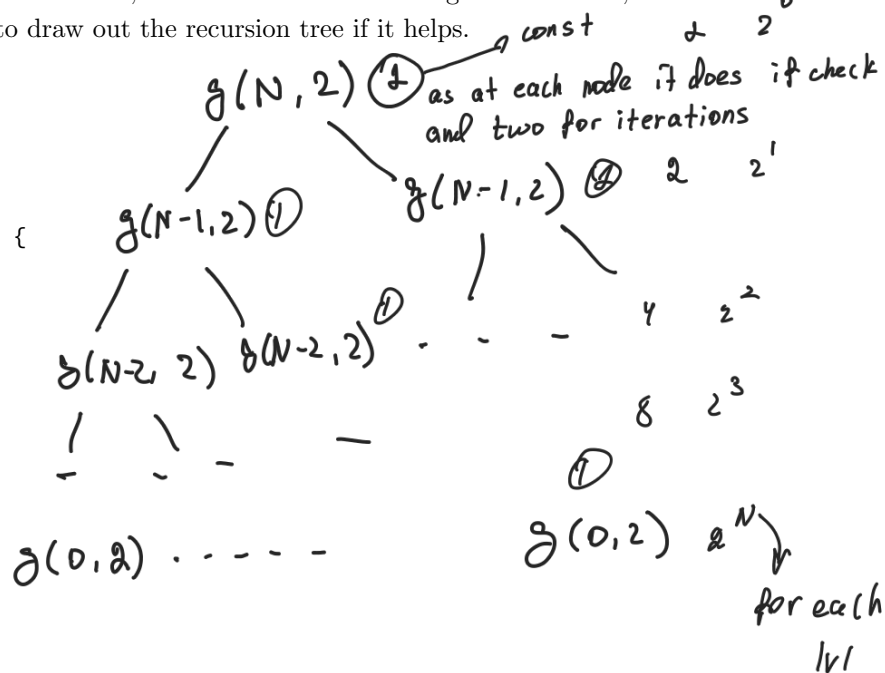 to draw out the recursion tree if it helps.
const
1 2^0
g(N, 2) 1
as at each node it does if check
and two for iterations
g(N-1, 2) 1 2 2^1
{ g(N-1, 2) 1
g(N-2, 2) g(N-2, 2) 1 . - - 4 2^2
8 2^3
- - - -
1
g(0, 2) . . - - - g(0, 2) 2^N
for each
lvl